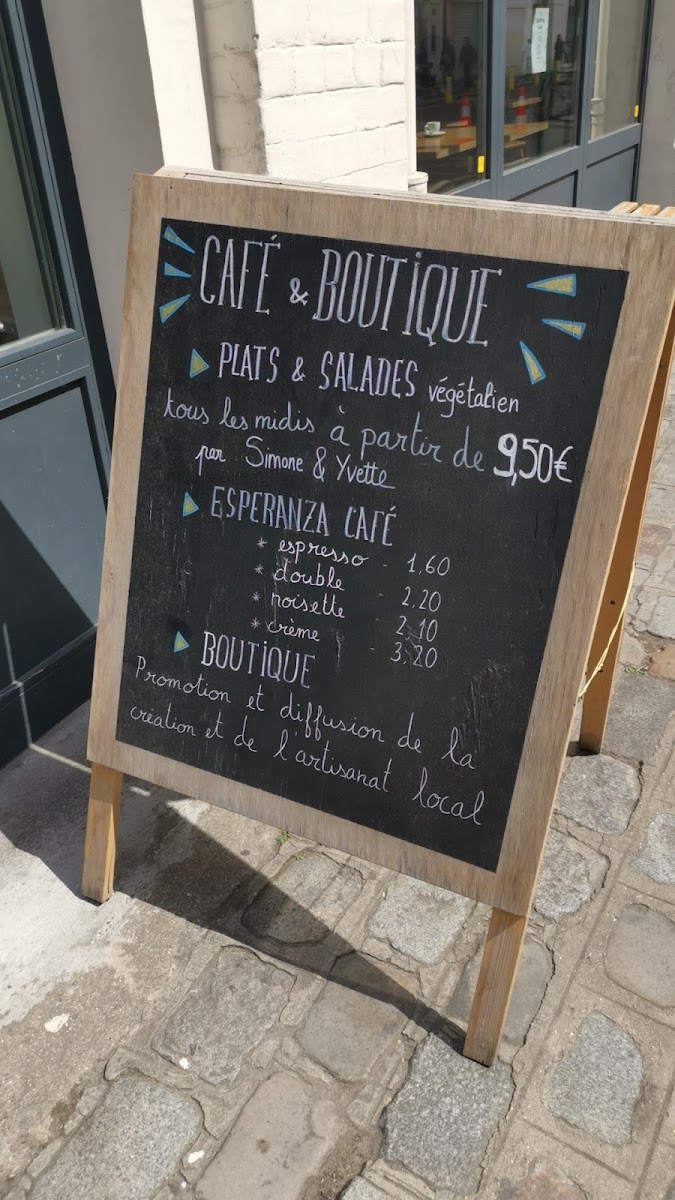 CAFÉ & BOUTIQUE
PLATS & SALADES végétalien
tous les midis à partir de 9,50€
par Simone & Yvette
ESPERANZA CAFÉ
* espresso - 1,60
* double - 2,20
* noisette - 2,10
* crème - 3,20
BOUTIQUE
Promotion et diffusion de la
création et de l'artisanat local